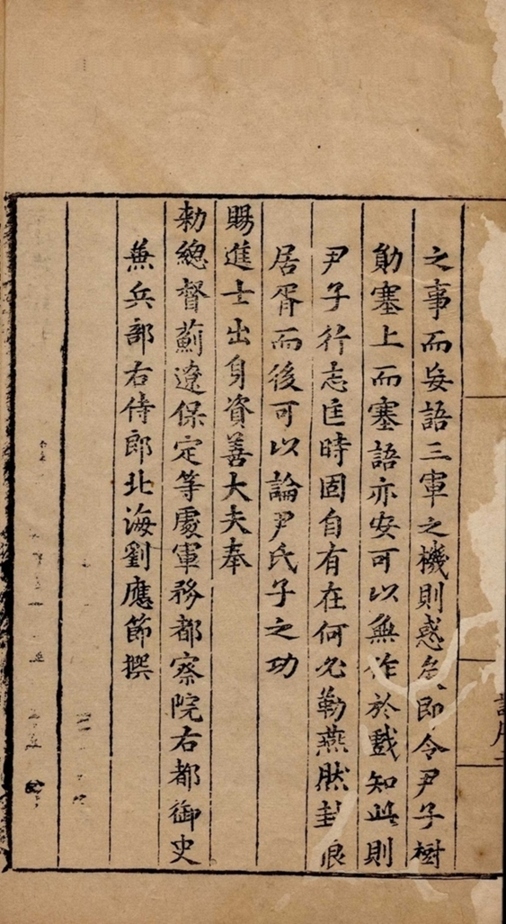 之事而妄語三軍之機則惑矣即令尹子樹
勛塞上而塞語亦安可以無作於戲知此則
尹子行志匡時固自有在何必勒燕然封狼
居胥而後可以論尹氏子之功
賜進士出身資善大夫奉
勑總督薊遼保定等處軍務都察院右都御史
兼兵部右侍郎北海劉應節撰